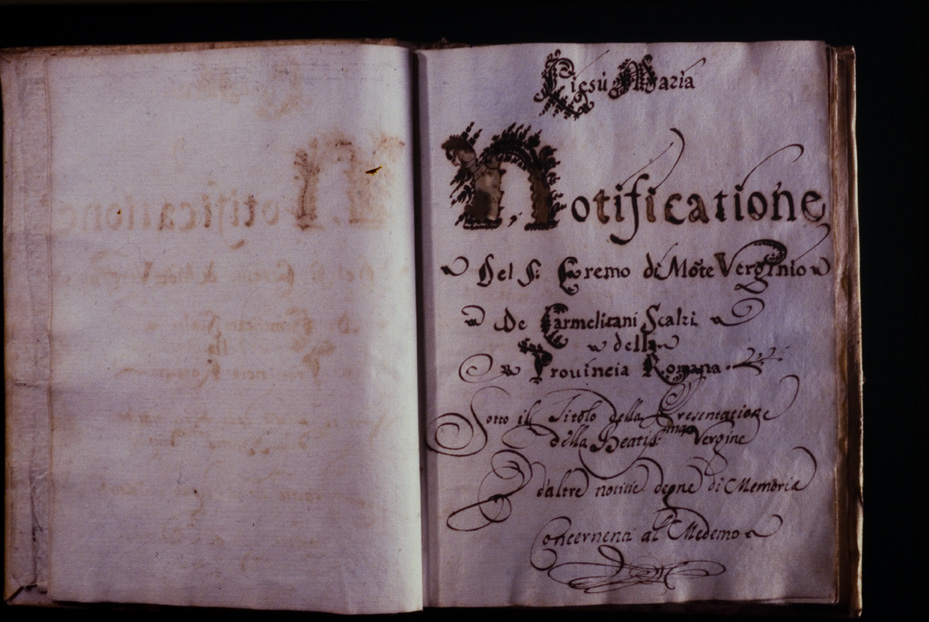 Giesù Maria
Notificatione
Del S: Eremo di Mõte Verginio
De Carmelitani Scalzi
della
Prouincia Romana.
Sotto il Titolo della Presentatione
della Beatis:ma Vergine
E d'altre notitie degne di Memoria
Concernenti al Medemo